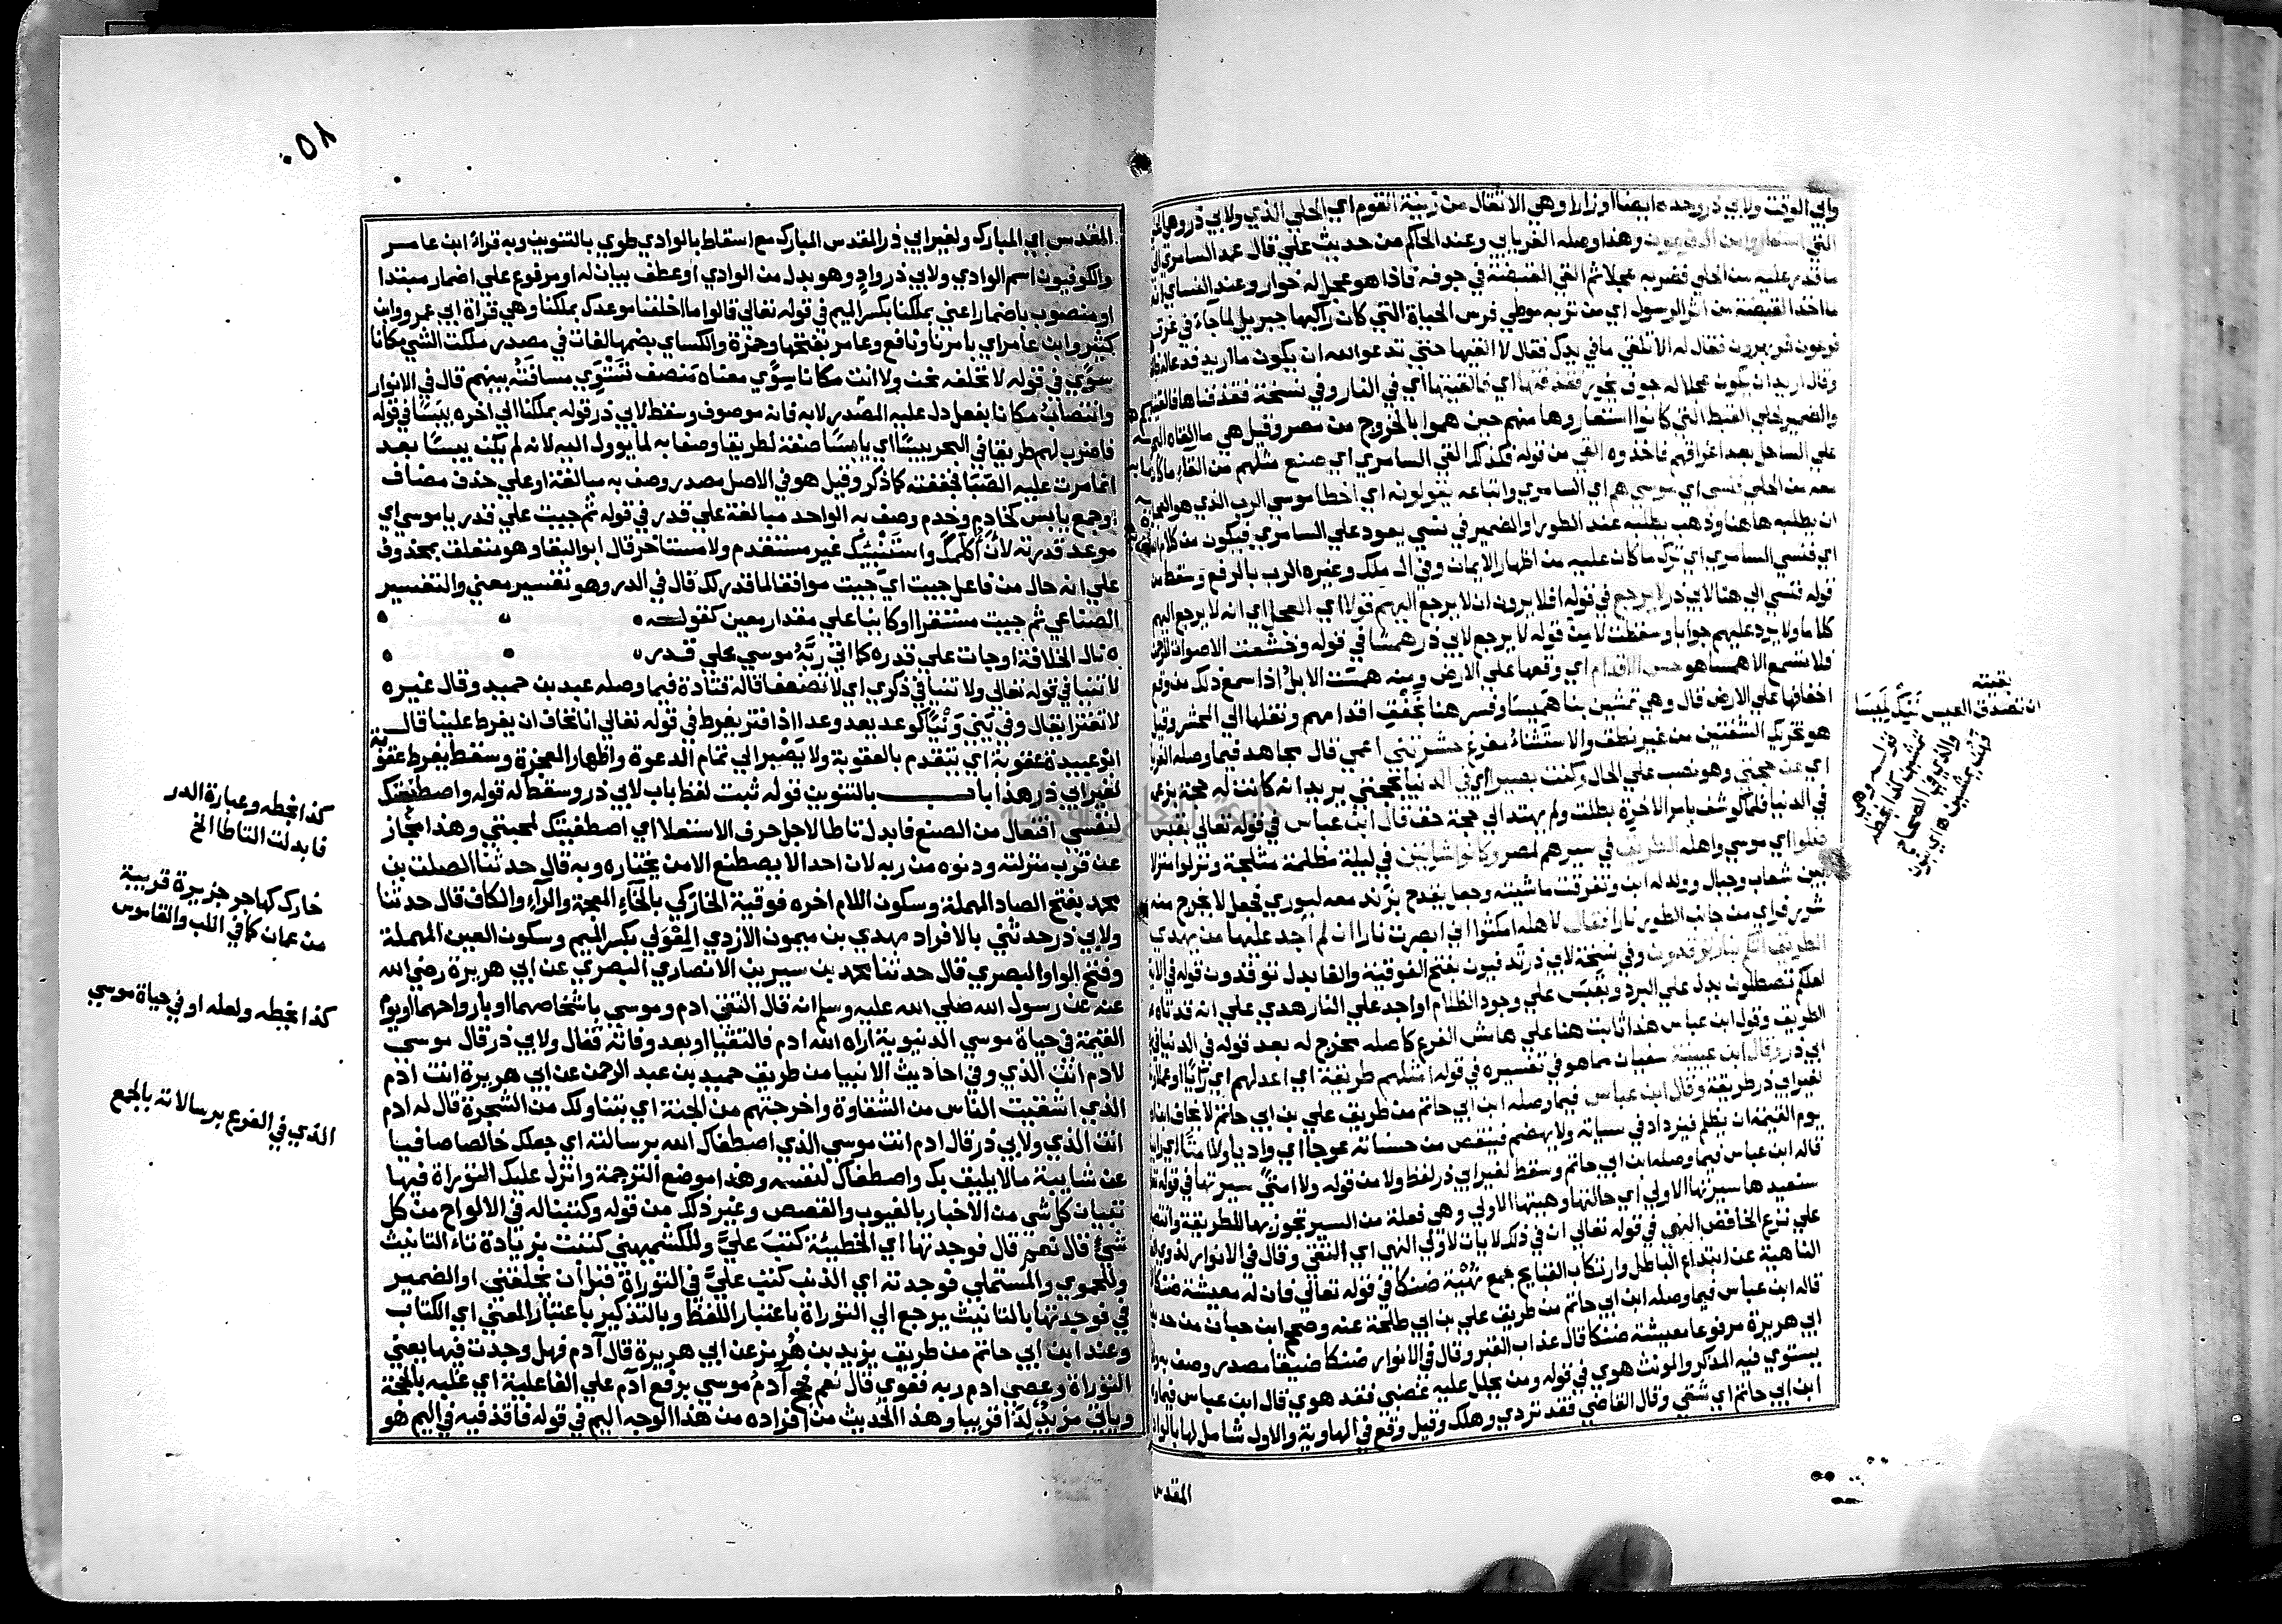 وابي الوقت ولابي ذر وحده ايضا اوزارا وهي الاثقال من زينة القوم اي الحلي الذي ولابي ذر وهي الحلي
التي استعاروا من ال فرعون وهذا وصله الفريابي وعند الحاكم من حديث علي قال عمد السامري الي
ما قدر عليه من الحلي فضربه عجلا ثم القي القبضة في جوفه فاذا هو عجل له خوار وعند النساي انه
ما اخذ القبضة من اثر الرسول اي من تربة موطي فرس الحياة التي كان راكبها جبريل لما جاء في غرق
فرعون فمر بهرون فقال له الا تلقي ما في يدك فقال لا القيها حتي تدعو الله ان يكون ما اريد فدعا له
وقال اريد ان يكون عجلا له جوف يخور فقذفتها اي فالقيتها اي في النار وفي نسخة فقذفناها فالقيناها
والضمير لحلي القبط التي كانوا استعاروها منهم حين هموا بالخروج من مصر وقيل هي ما القاه البحر
علي الساحل بعد اغراقهم فاخذوه القي من قوله فكذلك القي السامري اي صنع مثلهم من القاء ما كان
معه من الحلي فنسي اي موسي هم اي السامري واتباعه يقولونه اي اخطا موسي الرب الذي هو العجل
ان يطلبه هاهنا وذهب يطلبه عند الطور او الضمير في نسي يعود علي السامري فيكون من كلام الله
اي فنسي السامري اي ترك ما كان عليه من اظهار الايمان وفي ال ملك وغيره الرب بالرفع وسقط من
قوله فنسي الي هنا لابي ذر لا يرجع في قوله افلا يرون ان لا يرجع اليهم قولا اي العجل اي انه لا يرجع اليهم
كلاما ولا يرد عليهم جوابا وسقطت لا من قوله لا يرجع لابي ذر همسا في قوله وخشعت الاصوات للرحمن
فلا تسمع الا همسا هو حس الاقدام اي وقعها علي الارض ومنه همست الابل اذا سمع ذلك من وقع
اخفافها علي الارض قال وهي تمشين بنا هميسا وفسر هنا بخفق اقدامهم ونقلها الي المحشر وقيل
هو تحريك الشفتين من غير نطق والاستثناء مفرغ حشرتني اعمي قال مجاهد فيما وصله الفريابي
اي عن حجتي وهو نصب علي الحال وكنت بصيرا اي في الدنيا بحجتي يريد انه كانت له حجة بزعمه
في الدنيا فلما كوشف بامر الاخرة بطلت ولم يهتد الي حجة حق قال ابن عباس في قوله تعالي بقبس
ضلوا اي موسي واهله الطريق في سيرهم لمصر وكانوا شاتين في ليلة مظلمة مثلجة ونزلوا منزلا
بين شعاب وجبال وولد له ابن وتفرقت ماشيته وجعل يقدح بزند معه ليوري فجعل لا يخرج منه
شرر فراي من جانب الطور نارا فقال لاهله امكثوا اني ابصرت نارا ان لم اجد عليها من يهدي
الطريق اتكم بنار توقدون وفي نسخة لابي ذر تدفيون بفتح الفوقية والفا بدل توقدون قوله في الاية
لعلكم تصطلون يدل علي البرد وبقبس علي وجود الظلام او اجد علي النار هدي علي انه قد تاه
الطريق وقول ابن عباس هذا ثابت هنا علي هامش الفرع كاصله مخرج له بعد قوله في الدنيا
ابي ذر وقال ابن عيينة سفيان مما هو في تفسيره في قوله امثلهم طريقة اي اعدلهم اي رايا او عملا
لغير ابي ذر طريقة وقال ابن عباس فيما وصله ابن ابي حاتم من طريق علي بن ابي حاتم لا يخاف
يوم القيمة ان يظلم فيزداد في سياته ولا يهضم فينقص من حسناته عوجا اي واديا ولا امتا اي رابية
قاله ابن عباس فيما وصله ابن ابي حاتم وسقط لغير ابي ذر لفظ ولا من قوله ولا امتا سيرتها في قوله
سنعيدها سيرتها الاولي اي حالتها وهيتها الاولي وهي فعلة من السير تجوز بها للطريقة وانتصابها
علي نزع الخافض النهي في قوله تعالي ان في ذلك لايات لاولي النهي اي التقي وقال في الانوار لذوي
الناهية عن اتباع الباطل وارتكاب القبايح جمع نهية ضنكا في قوله تعالي فان له معيشة ضنكا
قاله ابن عباس فيما وصله ابن ابي حاتم من طريق علي بن ابي طلحة عنه وصحح ابن حبان من حديث
ابي هريرة مرفوعا معيشة ضنكا قال عذاب القبر وقال في الانوار ضنكا ضيقا مصدر وصف به
يستوي فيه المذكر والمونث هوي في قوله ومن يحلل عليه غضبي فقد هوي قال ابن عباس فيما
ابن ابي حاتم اي شقي وقال القاضي فقد تردي وهلك وقيل وقع في الهاوية والاول شامل لها بالواد
المقدس
بغيته
ان تصدق العيس ننك لميسا
قوله وهي
تمشين كذا بخطه
والذي في الصحاح
فهن يمشين
٥٨٠
المقدس اي المبارك ولغير ابي ذر المقدس المبارك مع اسقاط بالوادي طوي بالتنوين وبه قراء ابن عامر
والكوفيون اسم الوادي ولابي ذر واد وهو بدل من الوادي او عطف بيان له او مرفوع علي اضمار مبتدا
او منصوب باضمار اعني بملكنا بكسر الميم في قوله تعالي قالوا ما اخلفنا موعدك بملكنا وهي قراة ابي عمرو وابن
كثير وابن عامر اي بامرنا ونافع وعامر بفتحها وحمزة والكساي بضمها لغات في مصدر ملكت الشي مكانا
سوي في قوله لا نخلفه نحن ولا انت مكانا سوي معناه منصف تستوي مسافته بينهم قال في الانوار
وانتصاب مكانا بفعل دل عليه المصدر لا به فانه موصوف وسقط لابي ذر قوله بملكنا الي اخره يبسا في قوله
فاضرب لهم طريقا في البحر يبسا اي يابسا صفة لطريقا وصف به لما يوول اليه لانه لم يكن يبسا بعد
انما مرت عليه الصبا فجففته كما ذكر وقيل هو في الاصل مصدر وصف به مبالغة او علي حذف مضاف
او جمع يابس كخادم وخدم وصف به الواحد مبالغة علي قدر في قوله ثم جيت علي قدر يا موسي اي
موعد قدرته لان اكلمك واستنبئك غير مستقدم ولا مستاخر قال ابو البقا وهو متعلق بمحذوف
علي انه حال من فاعل جيت اي جيت موافقا لما قدر لك قال في الدر وهو تفسير معني والتفسير
الصناعي ثم جيت مستقرا او كاينا علي مقدار معين كقوله
نال الخلافة او جات علي قدر ه كما اتي ربه موسي علي قدر
لا تنيا في قوله تعالي ولا تنيا في ذكري اي لا تضعفا قاله قتادة فيما وصله عبد بن حميد وقال غيره
لا تفترا يقال وني يني ونيا كوعد يعد وعدا اذا فتر يفرط في قوله تعالي اننا نخاف ان يفرط علينا قال
ابو عبيدة عقوبة اي يتقدم بالعقوبة ولا يصبر الي تمام الدعوة واظهار المعجزة وسقط يفرط عقوبة
لغير ابي ذر هذا باب بالتنوين قوله ثبت لفظ باب لابي ذر وسقط له قوله واصطنعتك
لنفسي افتعال من الصنع فابدل تا طا لاجل حرف الاستعلا اي اصطفيتك لمحبتي وهذا مجاز
عن قرب منزلته ودنوه من ربه لان احدا لا يصطنع الا من يختاره وبه قال حدثنا الصلت بن
محمد بفتح الصاد المهملة وسكون اللام اخره فوقية الخاركي بالخاء المعجمة والراء والكاف قال حدثنا
ولابي ذر حدثني بالافراد مهدي بن ميمون الازدي المعولي بكسر الميم وسكون العين المهملة
وفتح الواو البصري قال حدثنا محمد بن سيرين الانصاري البصري عن ابي هريرة رضي الله
عنه عن رسول الله صلي الله عليه وسلم انه قال التقي ادم وموسي باشخاصهما او بارواحهما او يوم
القيمة في حياة موسي الدنيوية اراه الله ادم فالتقيا او بعد وفاته فقال ولابي ذر قال موسي
لادم انت الذي وفي احاديث الانبيا من طريق حميد بن عبد الرحمن عن ابي هريرة انت ادم
الذي اشقيت الناس من الشقاوة واخرجتهم من الجنة اي بتناولك من الشجرة قال له ادم
انت الذي ولابي ذر قال ادم انت موسي الذي اصطفاك الله برسالته اي جعلك خالصا صافيا
عن شايبة ما لا يليق بك واصطفاك لنفسه وهذا موضع الترجمة وانزل عليك التوراة فيها
تبيان كل شي من الاخبار بالغيوب والقصص وغير ذلك من قوله وكتبنا له في الالواح من كل
شيء قال نعم قال فوجدتها اي الخطيئة كتب علي وللكشميهني كتبت بزيادة تاء التانيث
وللحموي والمستملي فوجدته اي الذنب كتب علي في التوراة قبل ان يخلقني او الضمير
في فوجدتها بالتانيث يرجع الي التوراة باعتبار اللفظ وبالتذكير باعتبار المعني اي الكتاب
وعند ابن ابي حاتم من طريق يزيد بن هرمز عن ابي هريرة قال آدم فهل وجدت فيها يعني
التوراة وعصي ادم ربه فغوي قال نعم فحج آدم موسي برفع آدم علي الفاعلية اي غلبه بالحجة
وياتي مزيد لذا قريبا وهذا الحديث من افراده من هذا الوجه اليم في قوله فاقذفيه في اليم هو
كذا بخطه وعبارة الدر
فابدلت التا طا الخ
خارك كهاجر جزيرة قريبة
من عمان كما في اللب والقاموس
كذا بخطه ولعله او في حياة موسي
الذي في الفرع برسالاته بالجمع